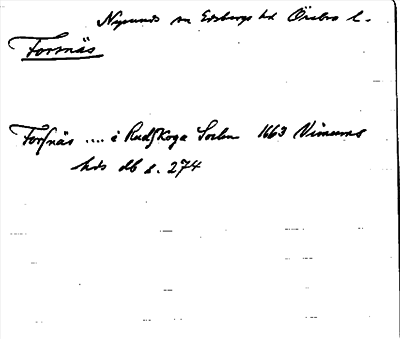 Nysunds sn Edsbergs hd Örebro l.
Forsnäs
Forsnäs .... i Rudskoga Sochn 1663 Visnums
hds db s. 274